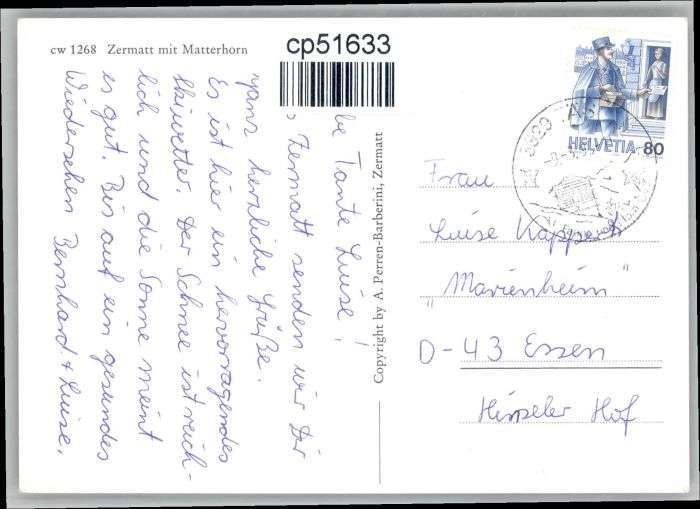 cw 1268 Zermatt mit Matterhorn
cp51633
HELVETIA 80
Tante Luise!
Zermatt senden wir Dir
ganz herzliche Grüße.
Es ist hier ein hervorragendes
Skiwetter. Der Schnee ist reich-
lich und die Sonne meint
es gut. Bis auf ein gesundes
Wiedersehen Bernhard. + Luise.
Copyright by A. Perren-Barberini, Zermatt
Frau
Luise
"Marienheim"
D-43 Essen
Hof